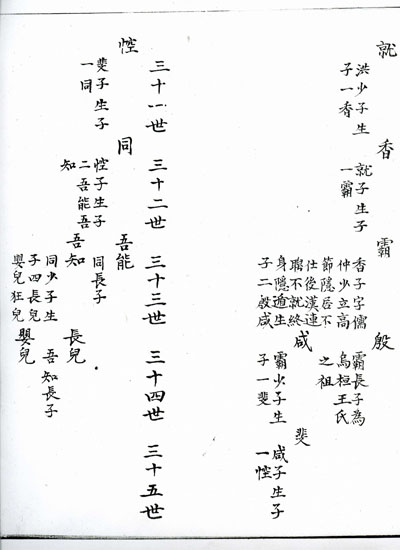 就
洪少子生
子一香
香
就子生子
一霸
霸
香子字儒
仲少立高
節隱居不
仕後漢連
聘不就終
身隱遁生
子二殷咸
殷
霸長子為
烏桓王氏
之祖
咸
霸少子生
子一斐
斐
咸子生子
一悾
三十一世
三十二世
三十三世
三十四世
三十五世
悾
斐子生子
一同
同
悾子生子
二吾能吾
知
吾能
同長子
吾知
同少子生
子四長兒
嬰兒狂兒
長兒
吾知長子
嬰兒